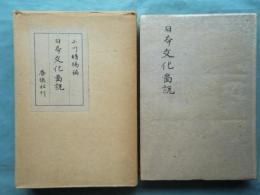 小川晴暘編
日本文化圖説
養徳社刊
日本文化圖説